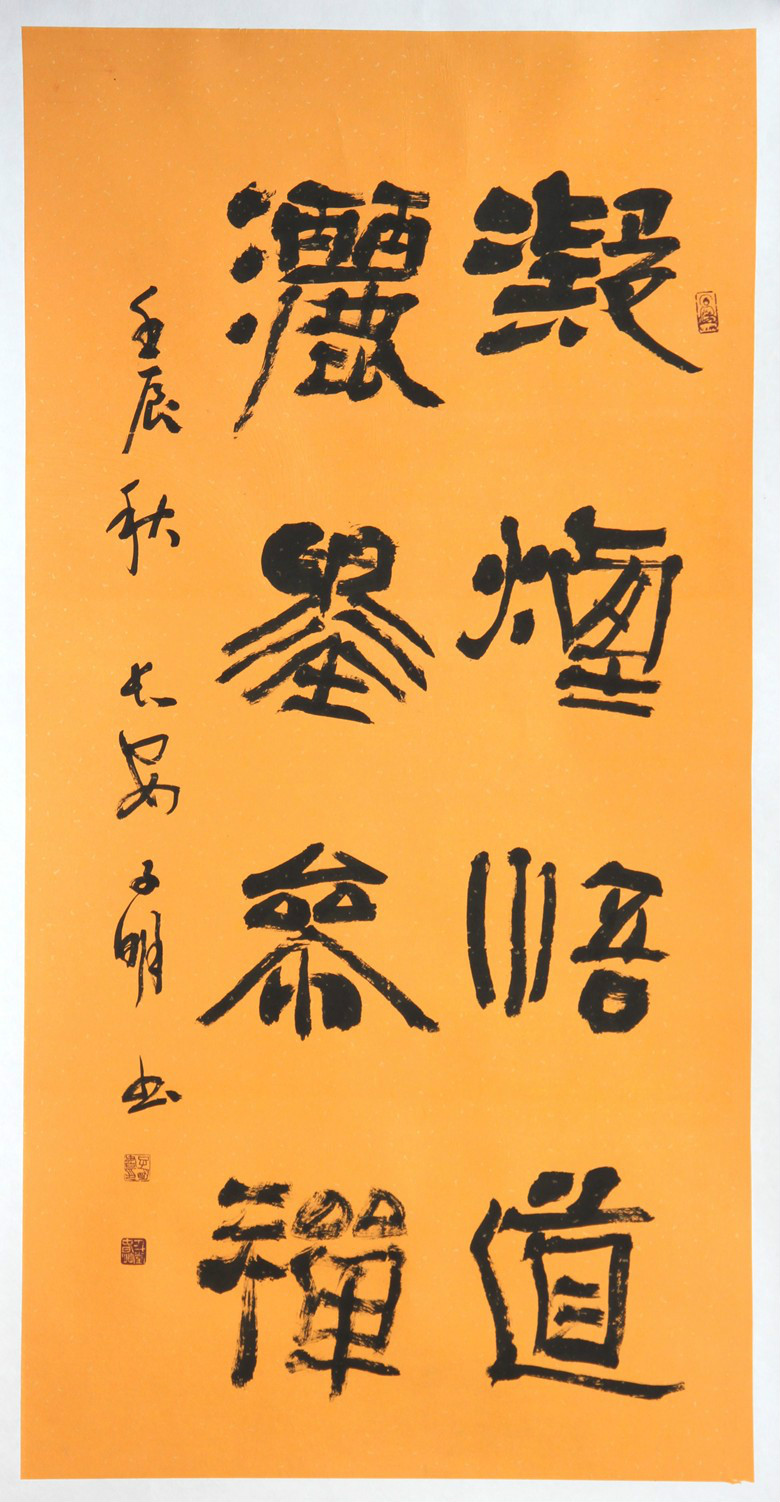 凝煙悟道
灑墨參禪
壬辰秋 长安子明书